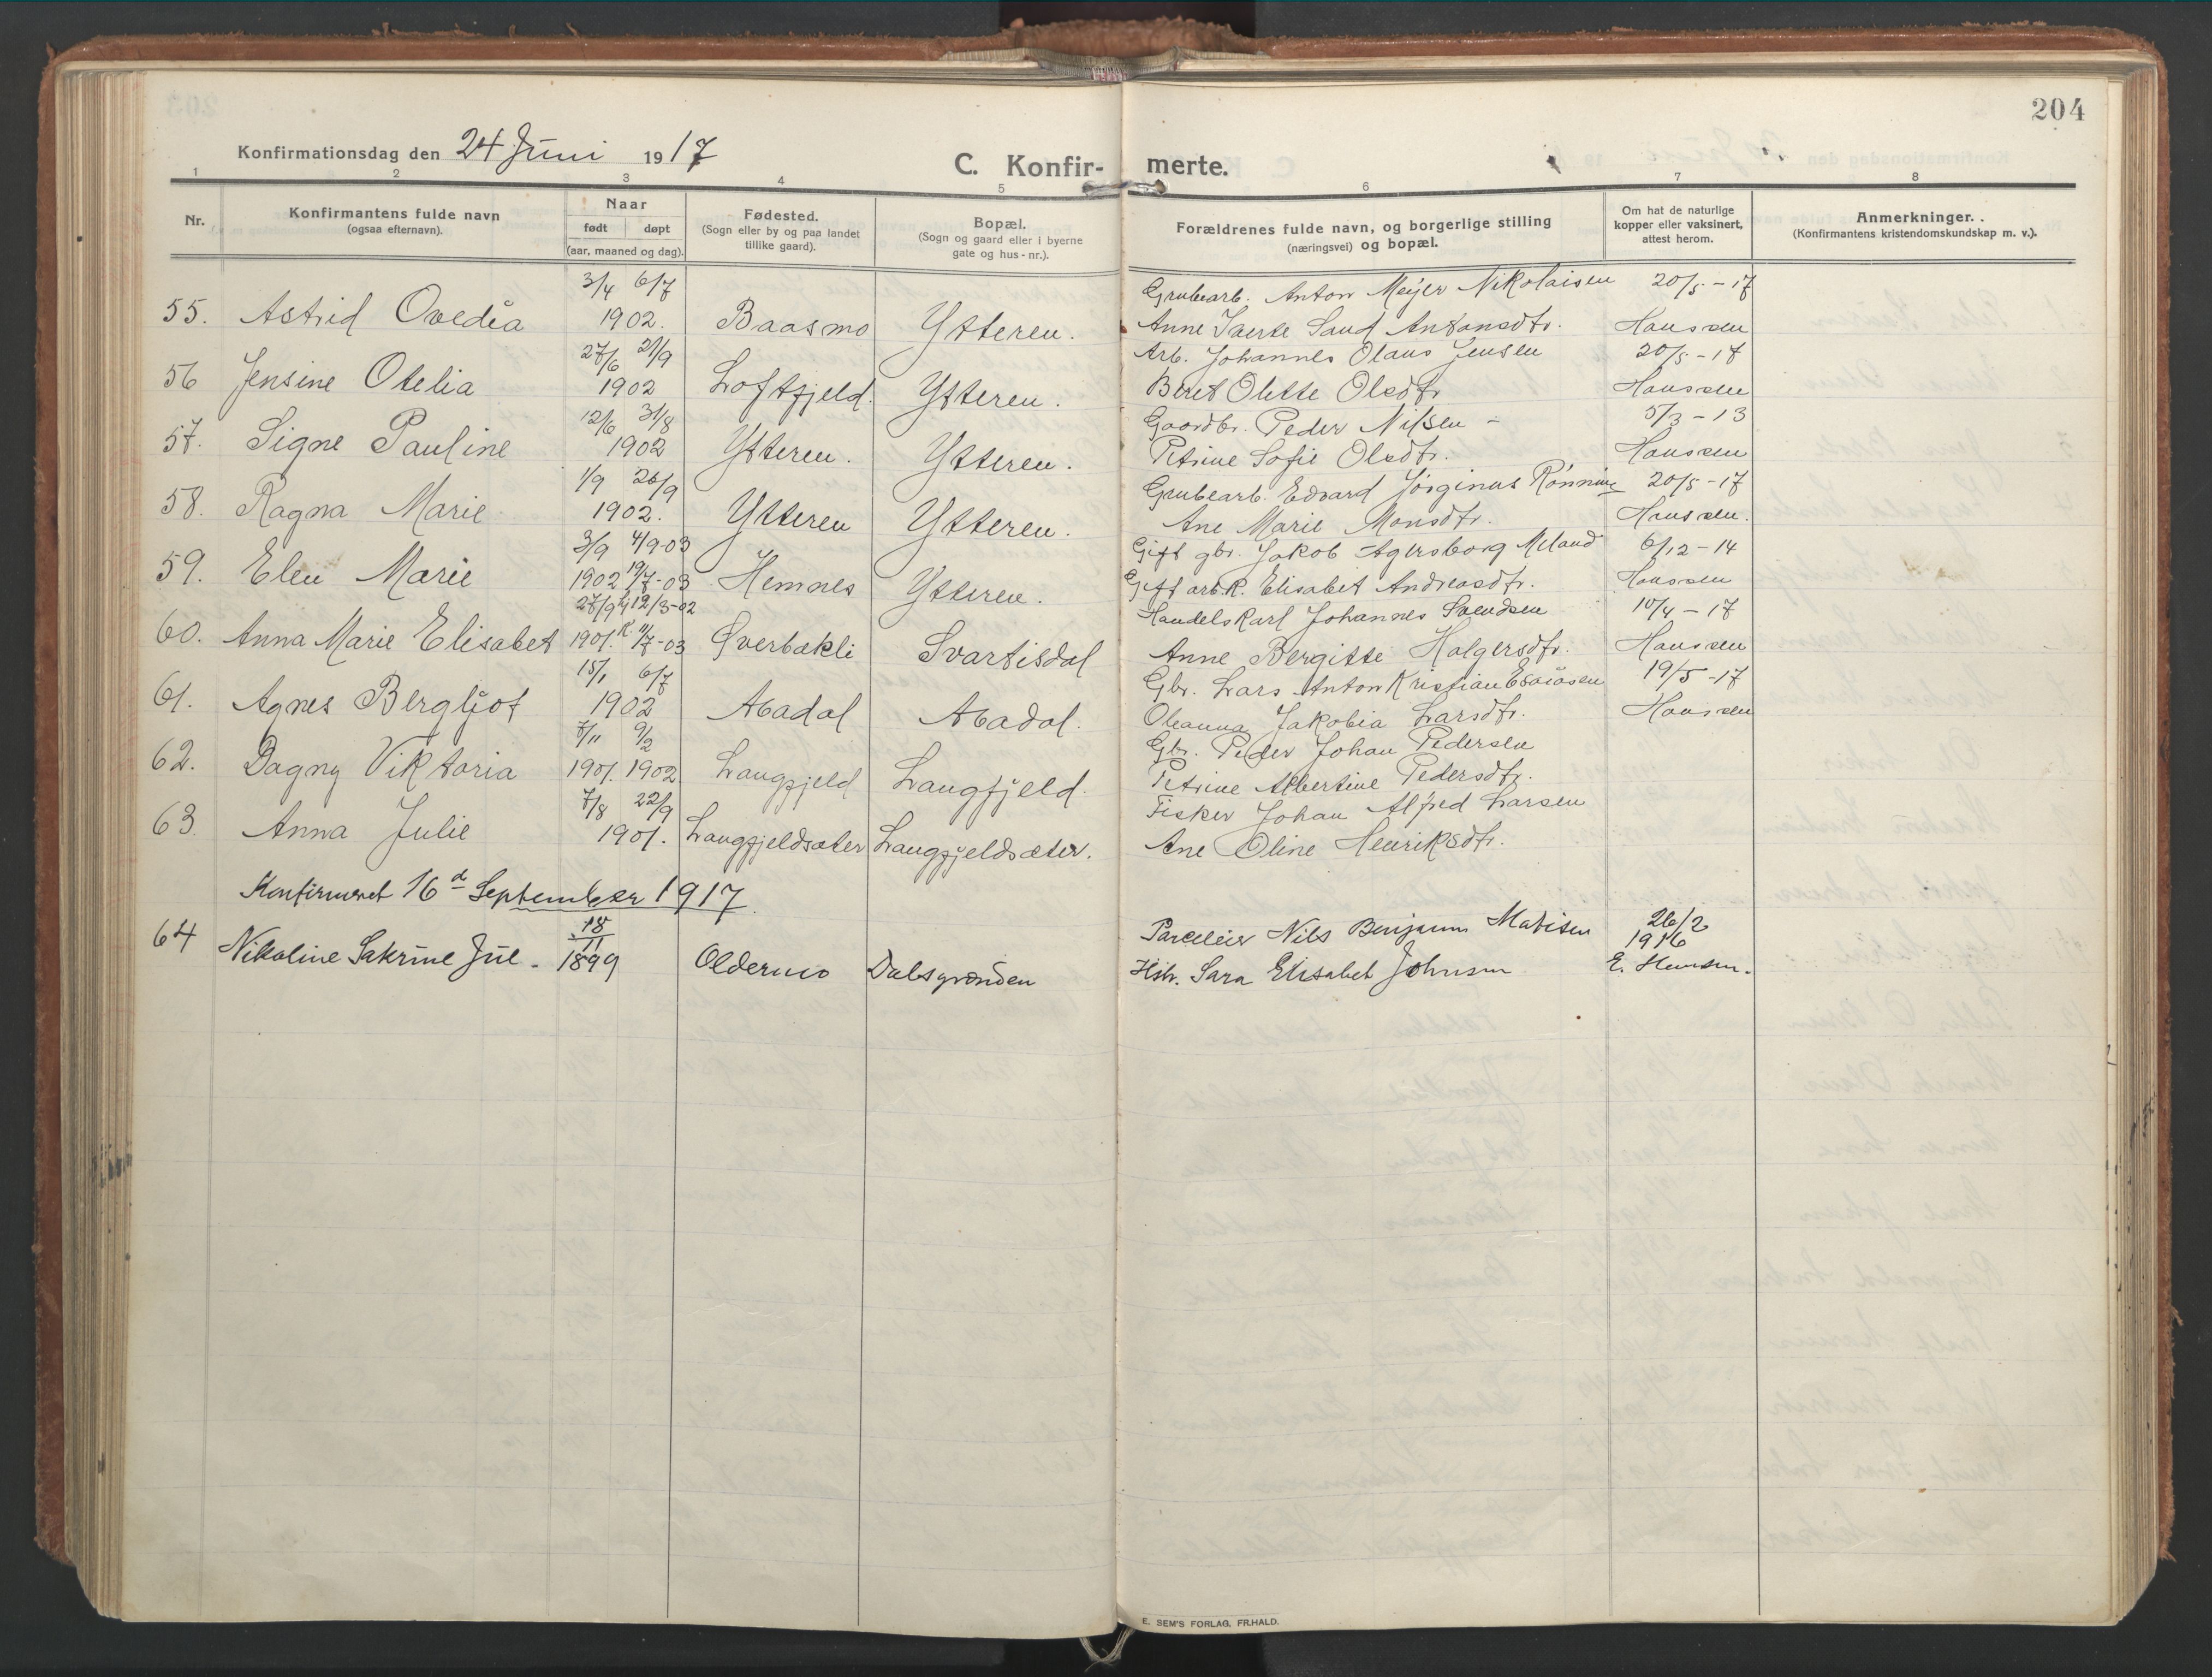 204
Konfirmationsdag den 24 Juni 1917
C. Konfir- merte.
1 2 3 4 5 6 7 8
Nr. Konfirmantens fulde navn (ogsaa efternavn). Naar født døpt (aar, maaned og dag). Fødested. (Sogn eller by og paa landet tillike gaard). Bopæl. (Sogn og gaard eller i byerne gate og hus-nr.). Forældrenes fulde navn, og borgerlige stilling (næringsvei) og bopæl. Om hat de naturlige kopper eller vaksinert, attest herom. Anmerkninger. (Konfirmantens kristendomskundskap m. v.).
3/4 6/7 Grubearb. Anton Meyer Nikolaisen 20/5-17
55. Astrid Ovedia 1902. Baasmo Ytteren. Anne Sand Antonsdtr. Hanssen
27/6 21/9 Arb. Johannes Olaus Jensen 20/5-17
56 Jensine Otelia 1902 Loftfjeld. Ytteren. Beret Olette Olsdtr. Hanssen
12/6 31/8 Gaardbr. Peder Nilsen - 5/3-13
57. Signe Pauline 1902 Ytteren. Ytteren. Petrine Sofie Olsdtr. Hanssen
1/9 26/9 Grubearb. Edvard Jørginus Rønning 20/5-17
58. Ragna Marie 1902. Ytteren Ytteren. Ane Marie Monsdtr. Hanssen.
3/9 4/9-03 Gift gbr. Jakob Agersborg Meland 6/12-14
59. Elen Marie 1902 19/7-03 Hemnes Ytteren. Gift arb.k. Elisabet Andreasdtr. Hanssen
27/9 12/3-02 Handelskarl Johannes Svendsen 10/4-17
60. Anna Marie Elisabet 1901. K 11/7-03 Øverbakli Svartisdal Anne Bergitte Holgersdtr. Hanssen
15/1 6/7 Gbr. Lars Anton Kristian Esaiasen 19/5-17
61. Agnes Bergljot 1902 Aadal Aadal. Oleanna Jakobia Larsdtr. Hanssen
7/11 9/2 Gbr. Peder Johan Pedersen
62. Dagny Viktoria 1901. 1902 Langfjeld Langfjeld. Petrine Albertine Pedersdtr.
7/8 22/9 Fisker Johan Alfred Larsen
63. Anna Julie 1901. Langfjeldsæter Langfjeldsæter. Ane Oline Henriksdtr.
Konfirmeret 16d September 1917
18/11 Parceleier Nils Benjamin Matisen 26/2 1916
64 Nikoline Sakrine Jul. 1899 Oldermo Dalsgrenden Hstr. Sara Elisabet Johnsen E. Hansen.
E. SEM'S FORLAG, FR.HALD.